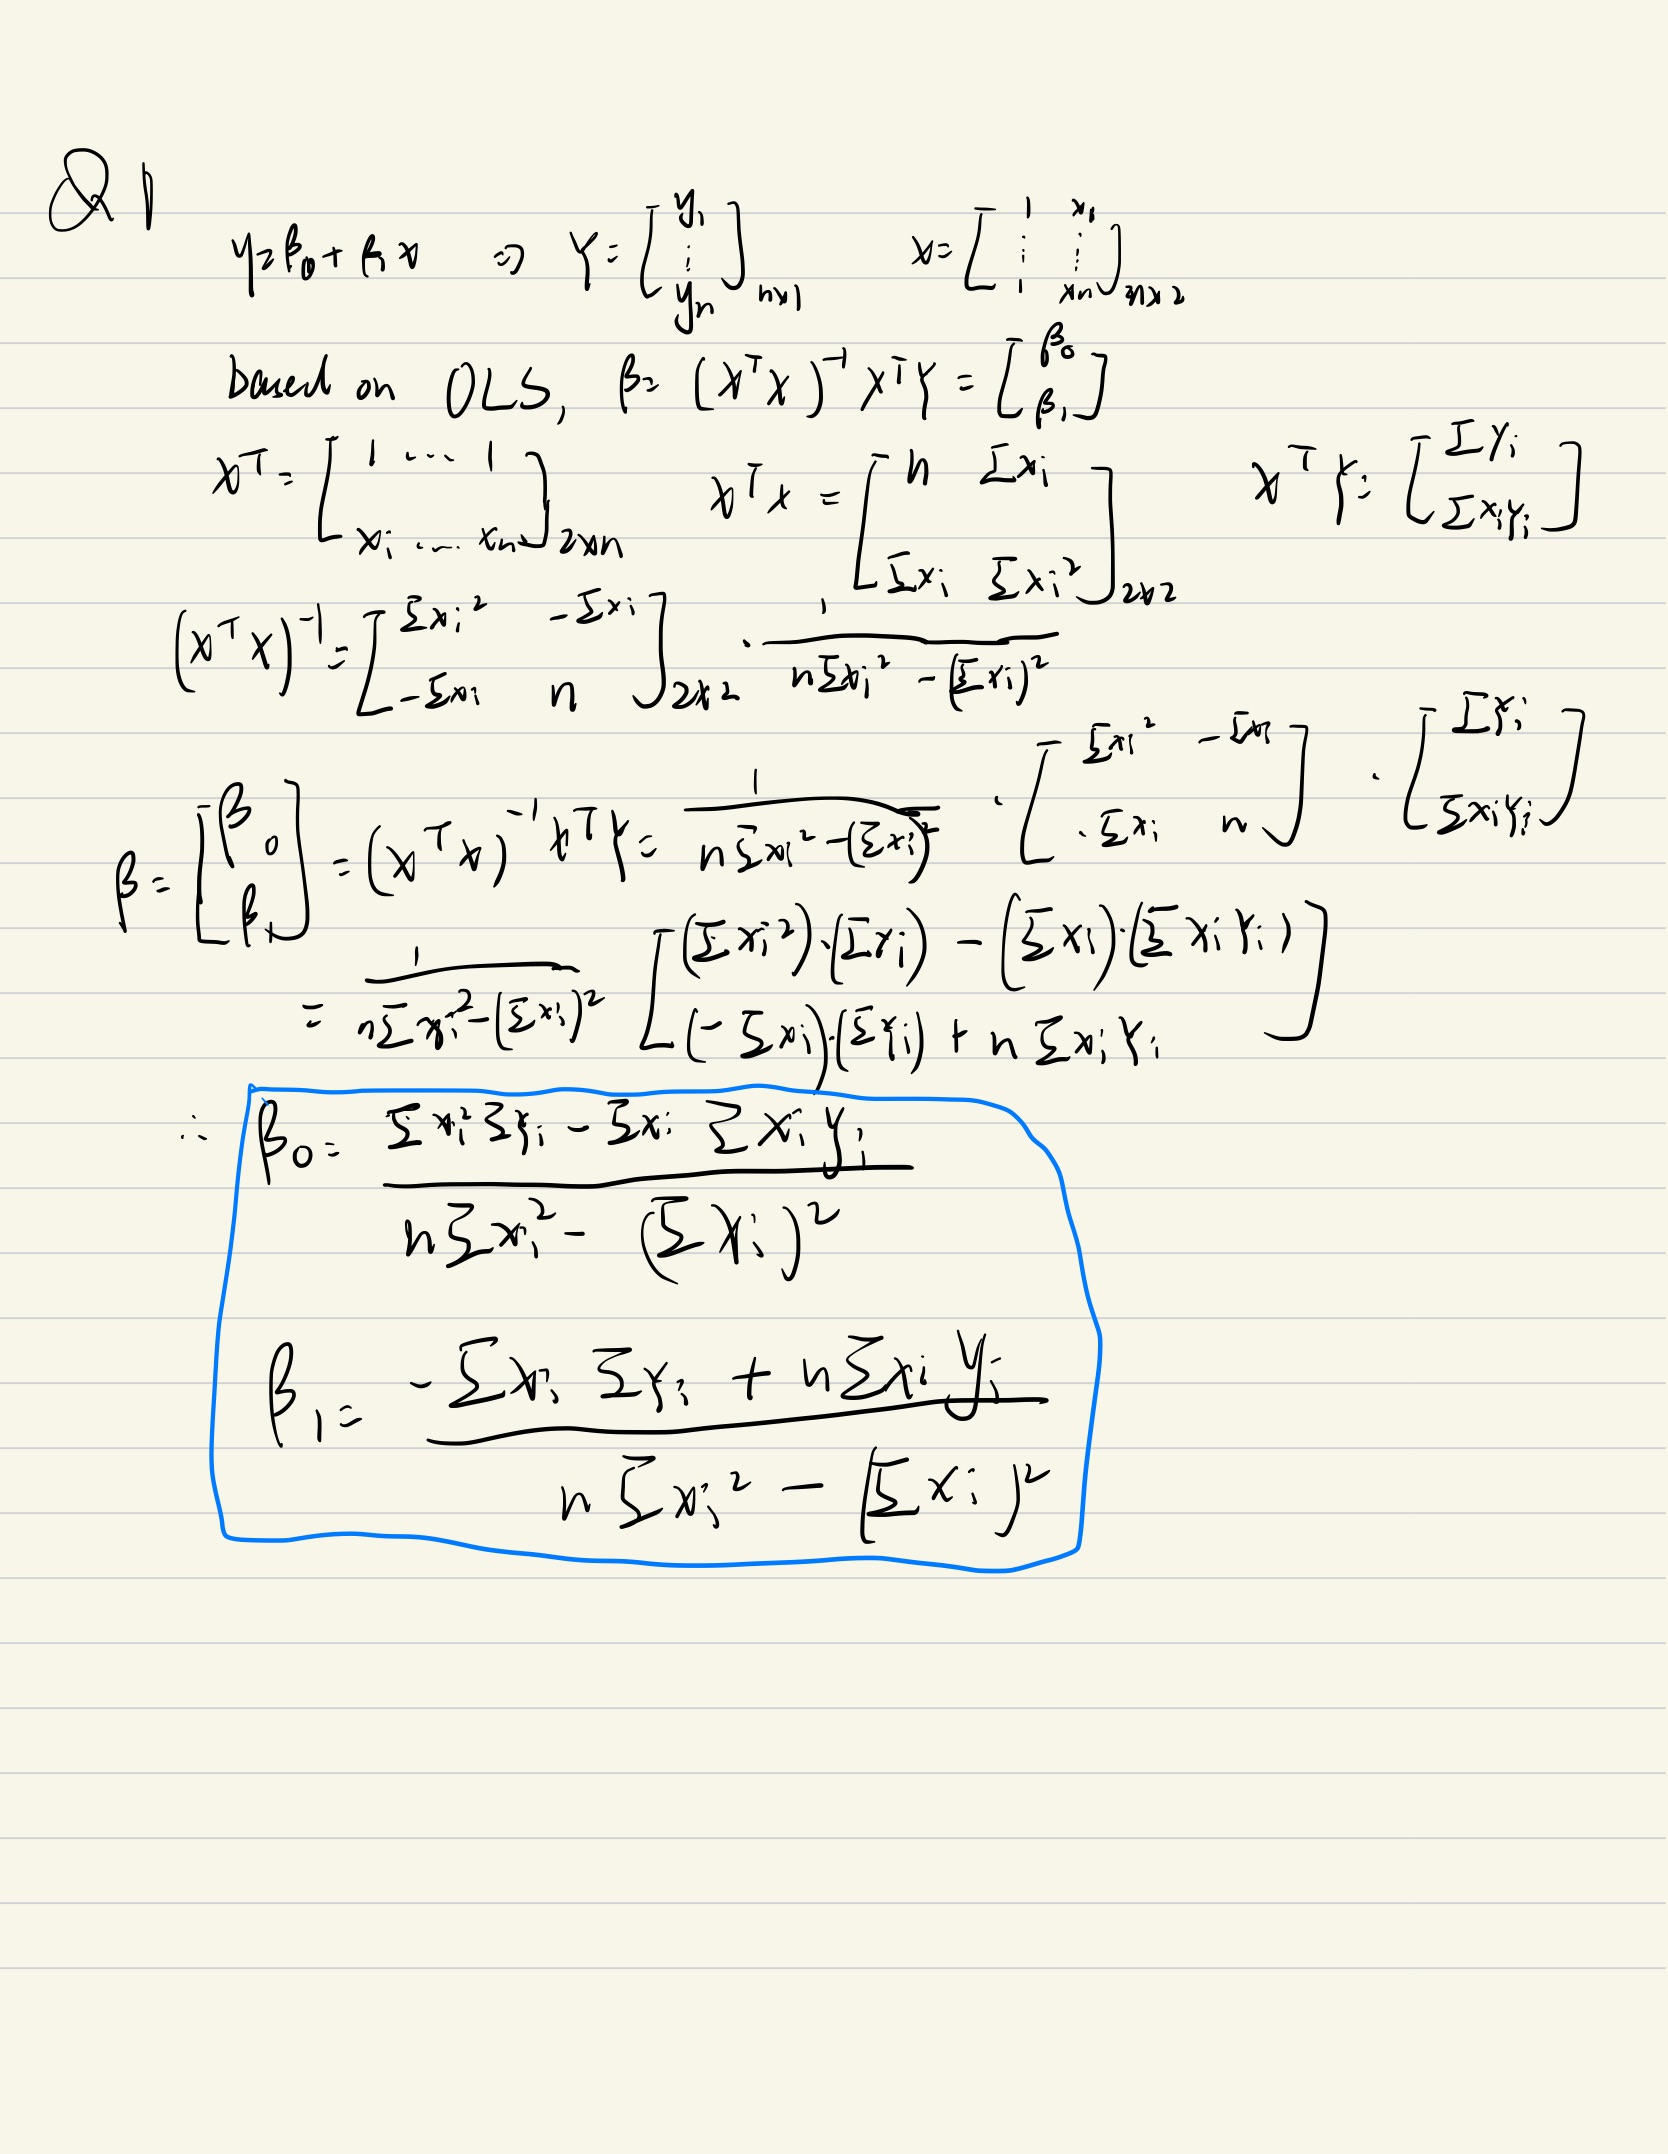 Q1
y=β₀+β₁x ⇒ Y=[y₁ ⋮ yₙ]ₙₓ₁ X=[1 x₁ ⋮ ⋮ 1 xₙ]ₙₓ₂
based on OLS, β=(XᵀX)⁻¹XᵀY=[β₀ β₁]
Xᵀ=[1 ... 1 xᵢ ... xₙ]₂ₓₙ XᵀX=[n Σxᵢ Σxᵢ Σxᵢ²]₂ₓ₂ XᵀY=[Σyᵢ Σxᵢyᵢ]
(XᵀX)⁻¹=[Σxᵢ² -Σxᵢ -Σxᵢ n]₂ₓ₂ · 1/(nΣxᵢ²-(Σxᵢ)²)
β=[β₀ β₁]=(XᵀX)⁻¹XᵀY=1/(nΣxᵢ²-(Σxᵢ)²) · [Σxᵢ² -Σxᵢ -Σxᵢ n] · [Σyᵢ Σxᵢyᵢ]
=1/(nΣxᵢ²-(Σxᵢ)²) [(Σxᵢ²)·(Σyᵢ)-(Σxᵢ)·(Σxᵢyᵢ) (-Σxᵢ)·(Σyᵢ)+nΣxᵢyᵢ]
∴ β₀=(Σxᵢ²Σyᵢ-ΣxᵢΣxᵢyᵢ)/(nΣxᵢ²-(Σxᵢ)²)
β₁=(-ΣxᵢΣyᵢ+nΣxᵢyᵢ)/(nΣxᵢ²-(Σxᵢ)²)